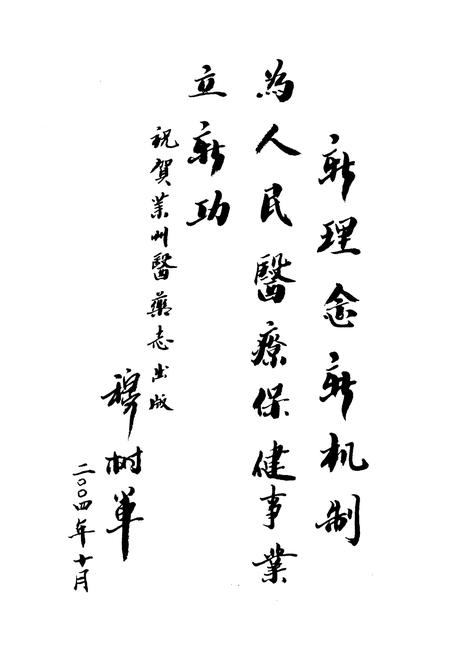 新理念新机制
为人民醫療保健事業
立新功
祝賀業州醫藥志出版
穆树军
二〇〇四年十月